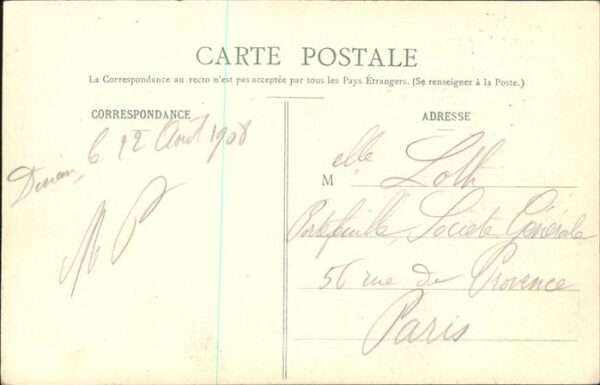 CARTE POSTALE
La Correspondance au recto n'est pas acceptée par tous les Pays Étrangers. (Se renseigner à la Poste.)
CORRESPONDANCE
Dinan le 12 Août 1908
M P
ADRESSE
Melle Loth
Portefeuille, Société Générale
56 rue de Provence
Paris